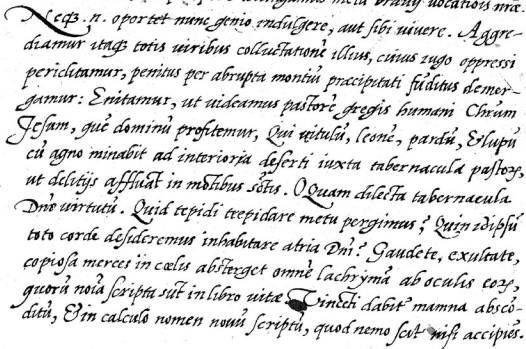 vocationis nr̃æ.
Neqȝ .n. oportet nunc genio indulgere, aut sibi vivere. Aggre-
diamur itaqȝ totis viribus colluctationē illius, cuius iugo oppressi
periclitamur, penitus per abrupta montiū præcipitati fūditus demer-
gamur: Enitamur, ut videamus pastorē gregis humani Chrūm
Jesum, quē dominū profitemur, Qui vitulū, leonē, pardū, & lupū
cū agno minabit ad interiora deserti iuxta tabernacula pastoꝝ,
ut delitijs affluāt in mōtibus sc̄tis. O Quam dilecta tabernacula
Dn̄e virtutū. Quid tepidi trepidare metu pergimus? Quin idipsū
toto corde desideremus inhabitare atria Dn̄i? Gaudete, exultate,
copiosa merces in cælis absterget omnē lachrymā ab oculis eoꝝ,
quorū noīa scripta sūt in libro vitæ Vincēti dabit manna absco-
ditū, & in calculo nomen novū scriptū, quod nemo scit nisi accipiēs.